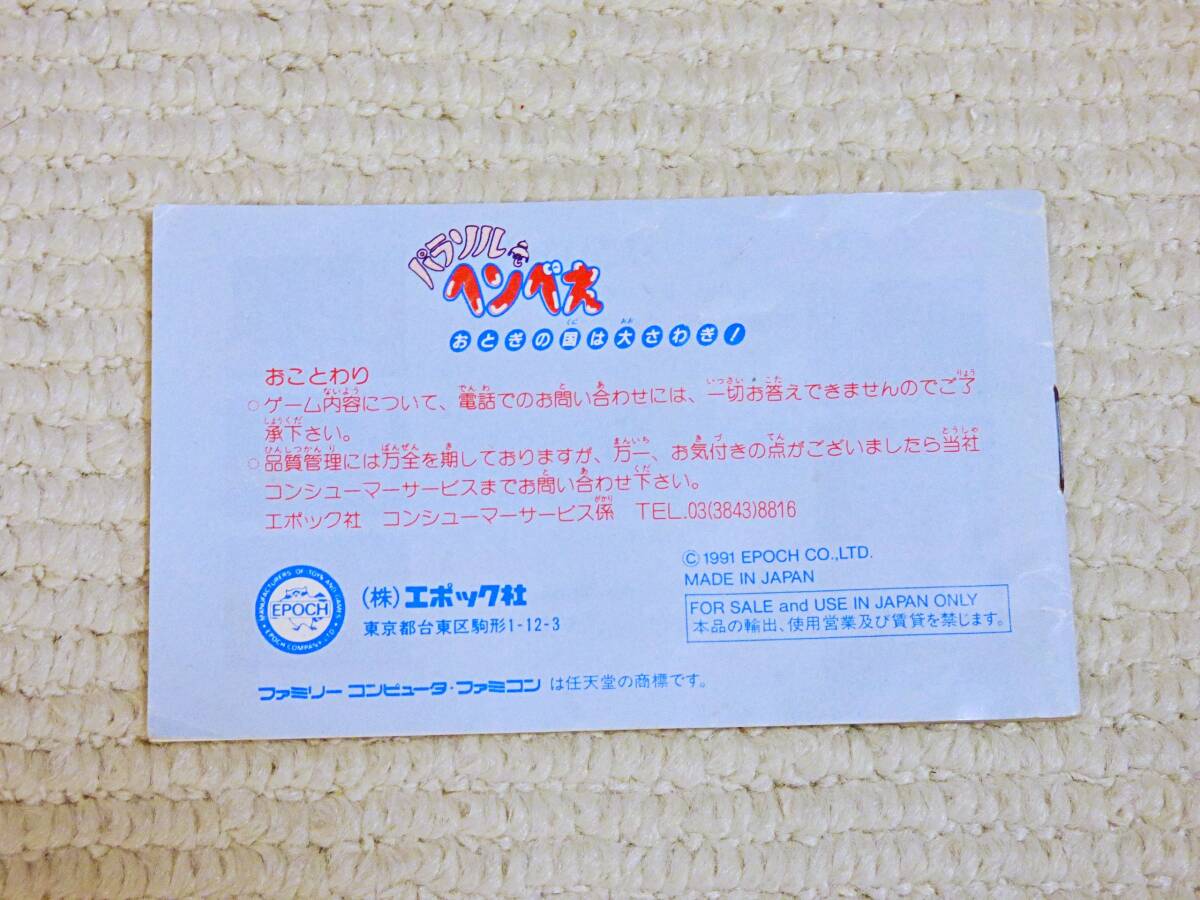 パラソル
ヘンべえ
おとぎの国は大さわぎ!
くに おお
おことわり
ないよう でんわ と あ いっさい こた りょう
○ゲーム内容について、電話でのお問い合わせには、一切お答えできませんのでご了
しょうくだ
承下さい。
ひんしつかんり ばんぜん き まんいち き づ てん とうしゃ
○品質管理には万全を期しておりますが、万一、お気付きの点がございましたら当社
と あ くだ
コンシューマーサービスまでお問い合わせ下さい。
がかり
エポック社 コンシューマーサービス係 TEL.03(3843)8816
MANUFACTURERS OF TOYS AND GAMES
EPOCH
EPOCH COMPANY LTD.
(株)エポック社
東京都台東区駒形1-12-3
© 1991 EPOCH CO.,LTD.
MADE IN JAPAN
FOR SALE and USE IN JAPAN ONLY
本品の輸出、使用営業及び賃貸を禁じます。
ファミリー コンピュータ・ファミコン は任天堂の商標です。